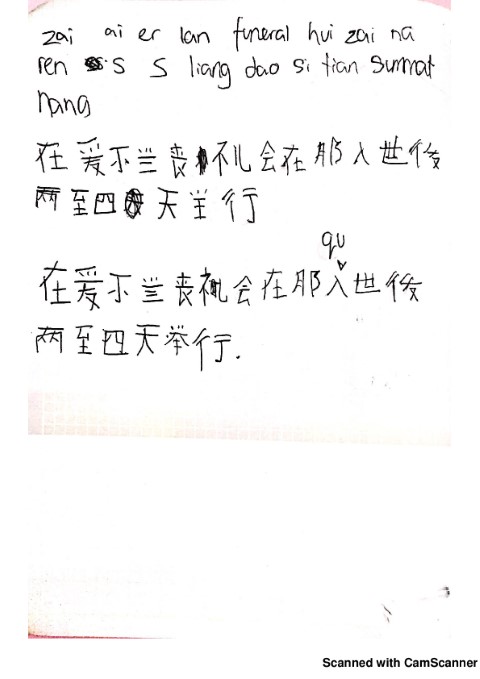 zai ai er lan funeral hui zai na
ren s s liang dao si tian summat
hang
在爱尔兰丧礼会在那人世後
两至四天举行
qu
在爱尔兰丧礼会在那人世後
两至四天举行.
Scanned with CamScanner